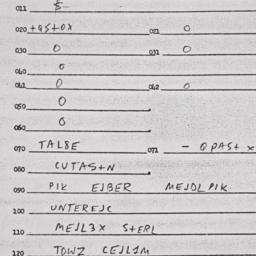 011 $
020 +9S+0X 021 0
030 0 031 0
040 0
041 0 042 0
050 0
060 0
070 TAL8E 071 - QPAS+ X
080 CUTAS+N
090 PIK EJBER MEJDLPIK
100 UNTEREJC
110 MEJL3X S+ERL
120 TOWZ CEJL1M